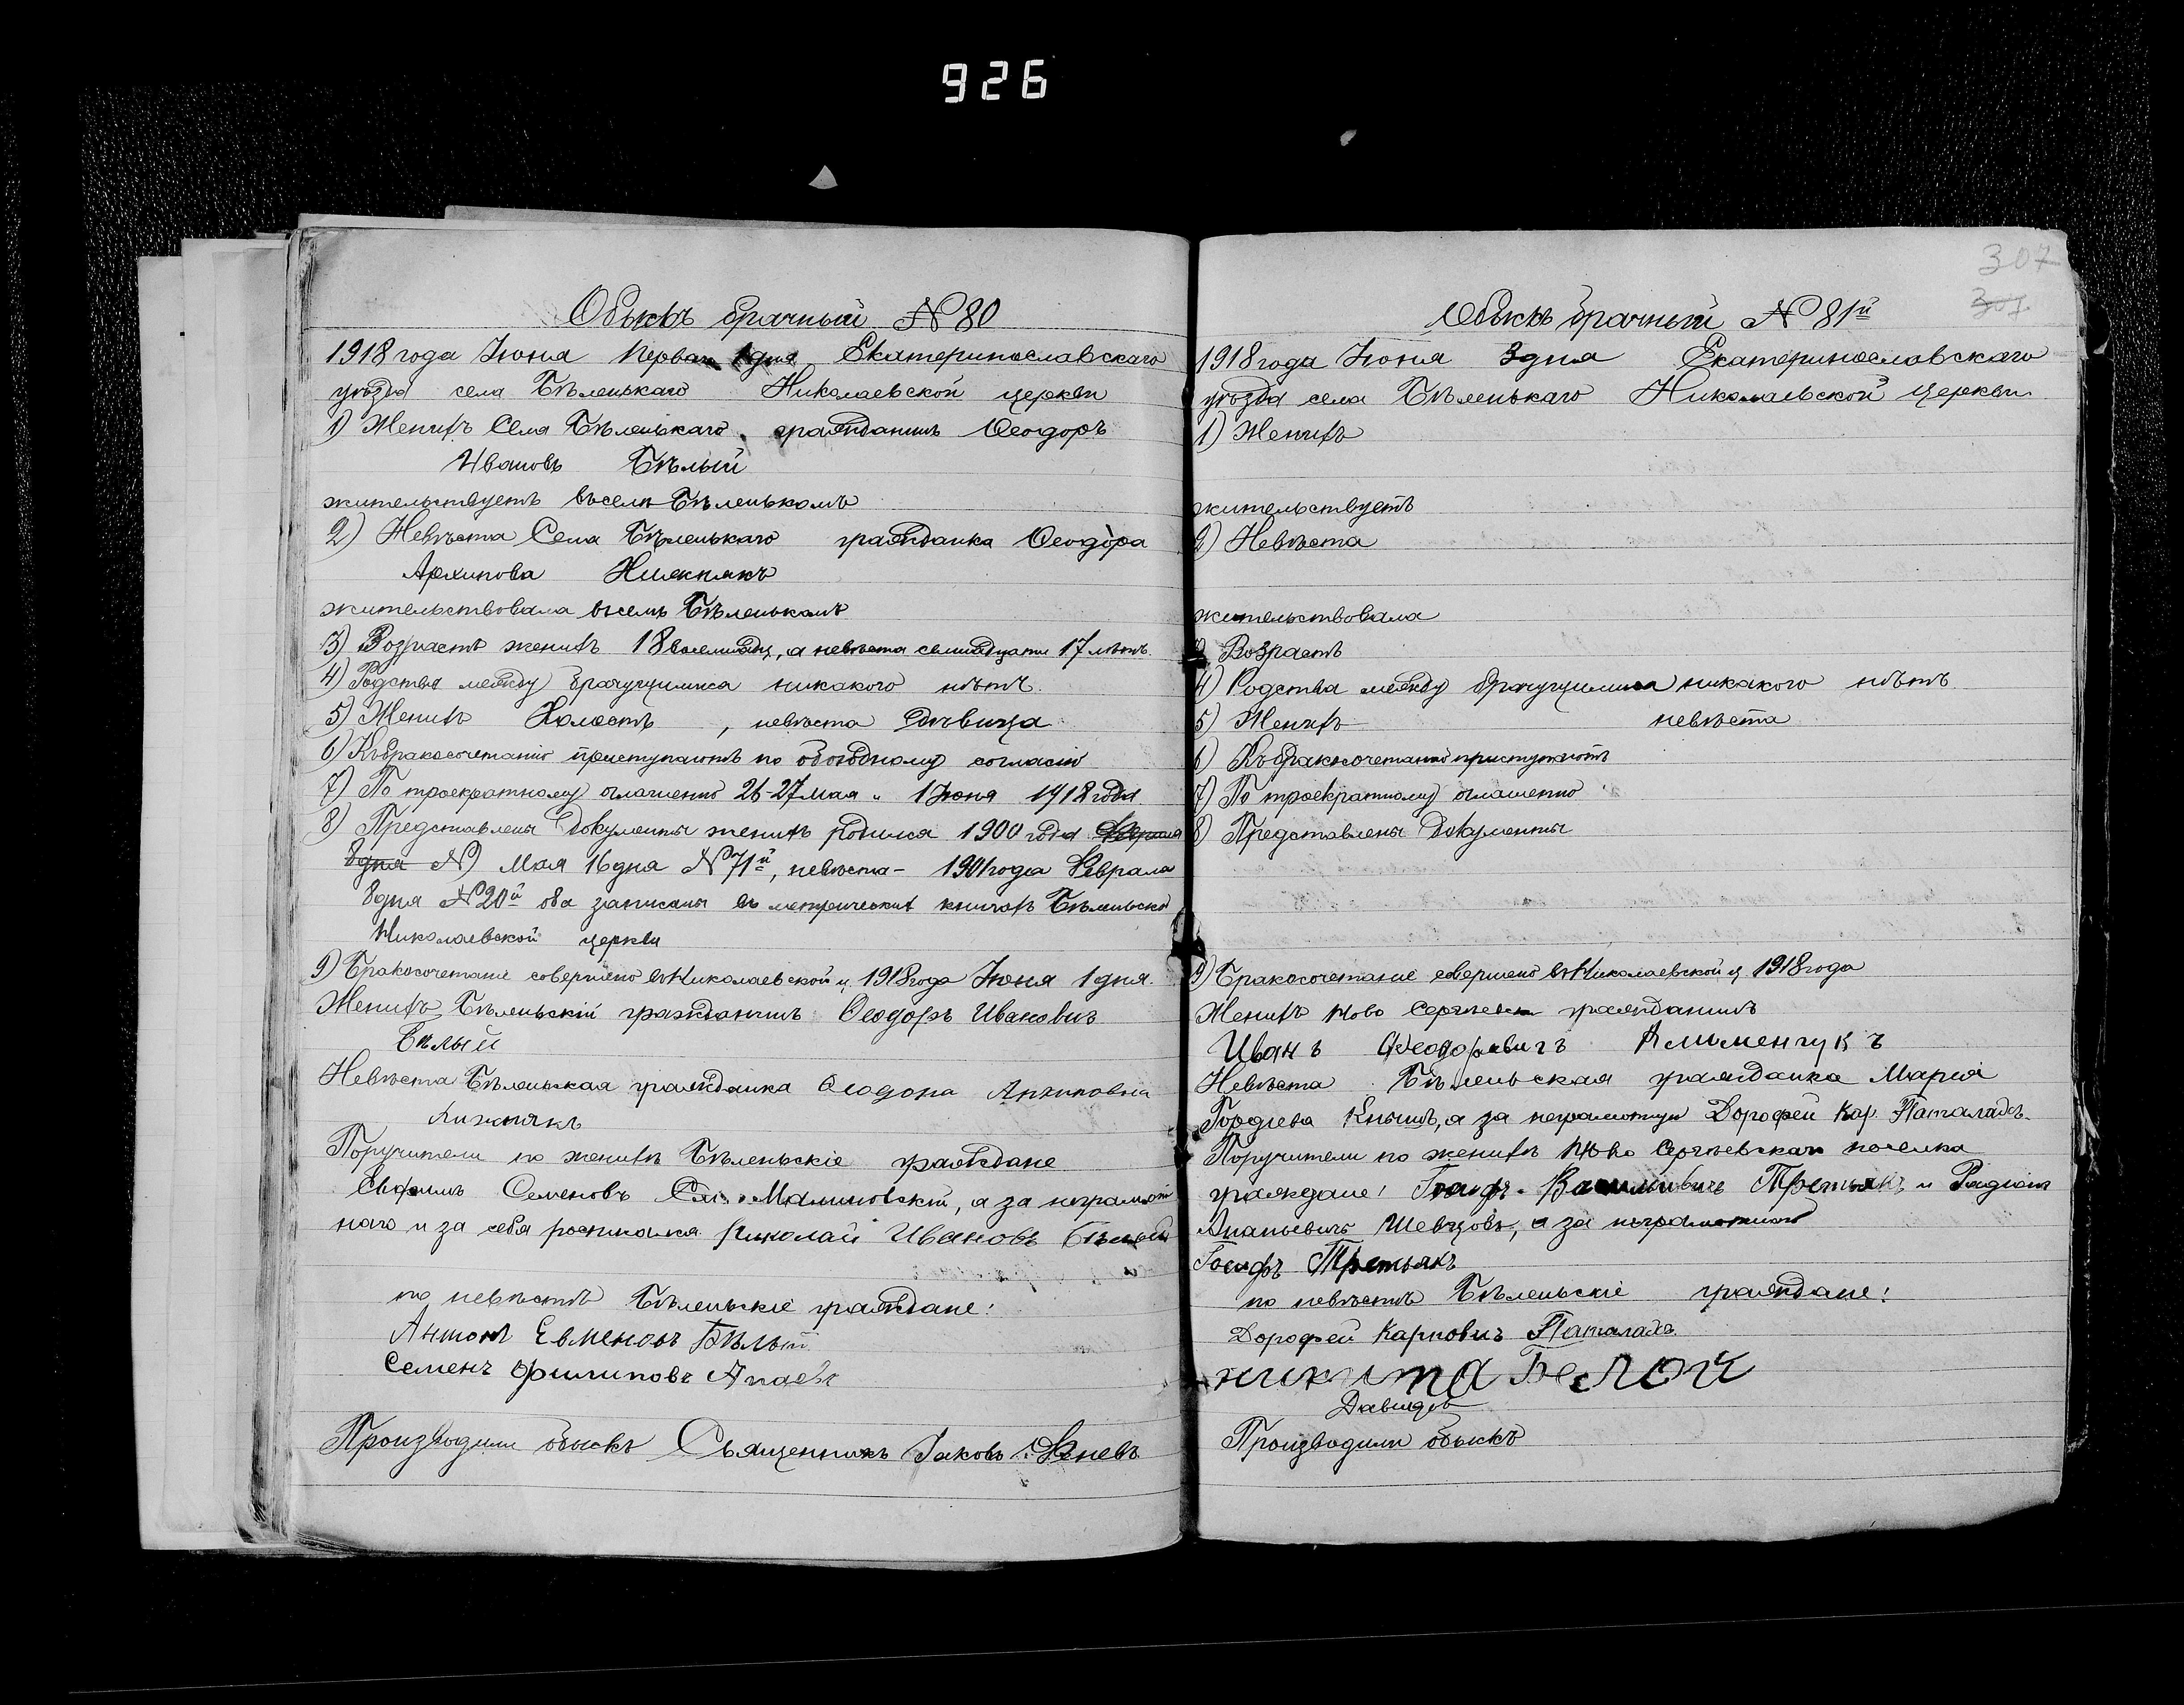 926
Обыскъ брачный № 80
1918 года Іюня первая 1 дня Екатеринославскаго
уѣзда села Бѣленькаго Николаевской церкви
1) Женихъ села Бѣленькаго гражданинъ Ѳеодоръ
Ивановъ Бѣлый
жительствуетъ въ селѣ Бѣленькомъ
2) Невѣста Села Бѣленькаго гражданка Ѳеодора
Архипова Нижникъ
жительствовала въ селѣ Бѣленькомъ
3) Возрастъ женихъ 18 восемнадц, а невѣста семнадцати 17 лѣтъ.
4) Родства между брачущимися никакого нѣтъ.
5) Женихъ Холостъ, невѣста Дѣвица
6) Къ бракосочетанію приступаютъ по обоюдному согласію
7) По троекратному оглашенію 26-27 мая и 1 Іюня 1918 года.
8) Представлены Документы женихъ родился 1900 года Февраля
8 дня №) Мая 16 дня № 71й, невѣста - 1901 года Февраля
8 дня № 20й оба записаны въ метрическихъ книгахъ Бѣленьской
Николаевской церкви
9) Бракосочетаніе совершено въ Николаевской ц 1918 года Іюня 1 дня.
Женихъ Бѣленьскій гражданинъ Ѳеодоръ Ивановичъ
Бѣлый
Невѣста Бѣленьская гражданка Ѳеодора Архиповна
Нижникъ
Поручители по женихѣ Бѣленьскіе граждане
Евфимъ Семеновъ Малиновскій, а за неграмот
наго и за себя росписался Николай Ивановъ Бѣлый
по невѣстѣ Бѣленьскіе граждане:
Антонъ Евменовъ Бѣлый
Семенъ Филиповъ
Производили обыскъ Священникъ Іаковъ
307
Обыскъ брачный № 81й
1918 года Іюня 3 дня Екатеринославскаго
уѣзда села Бѣленькаго Николаевской церкви
1) Женихъ
жительствуетъ
2) Невѣста
жительствовала
3) Возрастъ
4) Родства между брачущимися никакого нѣтъ
5) Женихъ невѣста
6) Къ бракосочетанію приступаютъ
7) По троекратному оглашенію
8) Представлены Документы
9) Бракосочетаніе совершено въ Николаевской ц 1918 года
Женихъ Ново гражданинъ
Иванъ Феодоровичъ
Невѣста Бѣленьская гражданка Марія
Гордіева Книшъ, а за неграмотную Дорофей Кар. Паталахъ.
Поручители по женихѣ Ново Сергѣевскаго поселка
граждане: Іосифъ Васильевичъ Третьякъ и Радіонъ
Ананьевичъ Шевцовъ, а за неграмотнаго
Іосифъ Третьякъ
по невѣстѣ Бѣленьскіе граждане:
Дорофей Карповичъ Паталахъ
никита Белой
Давидовъ
Производили обыскъ